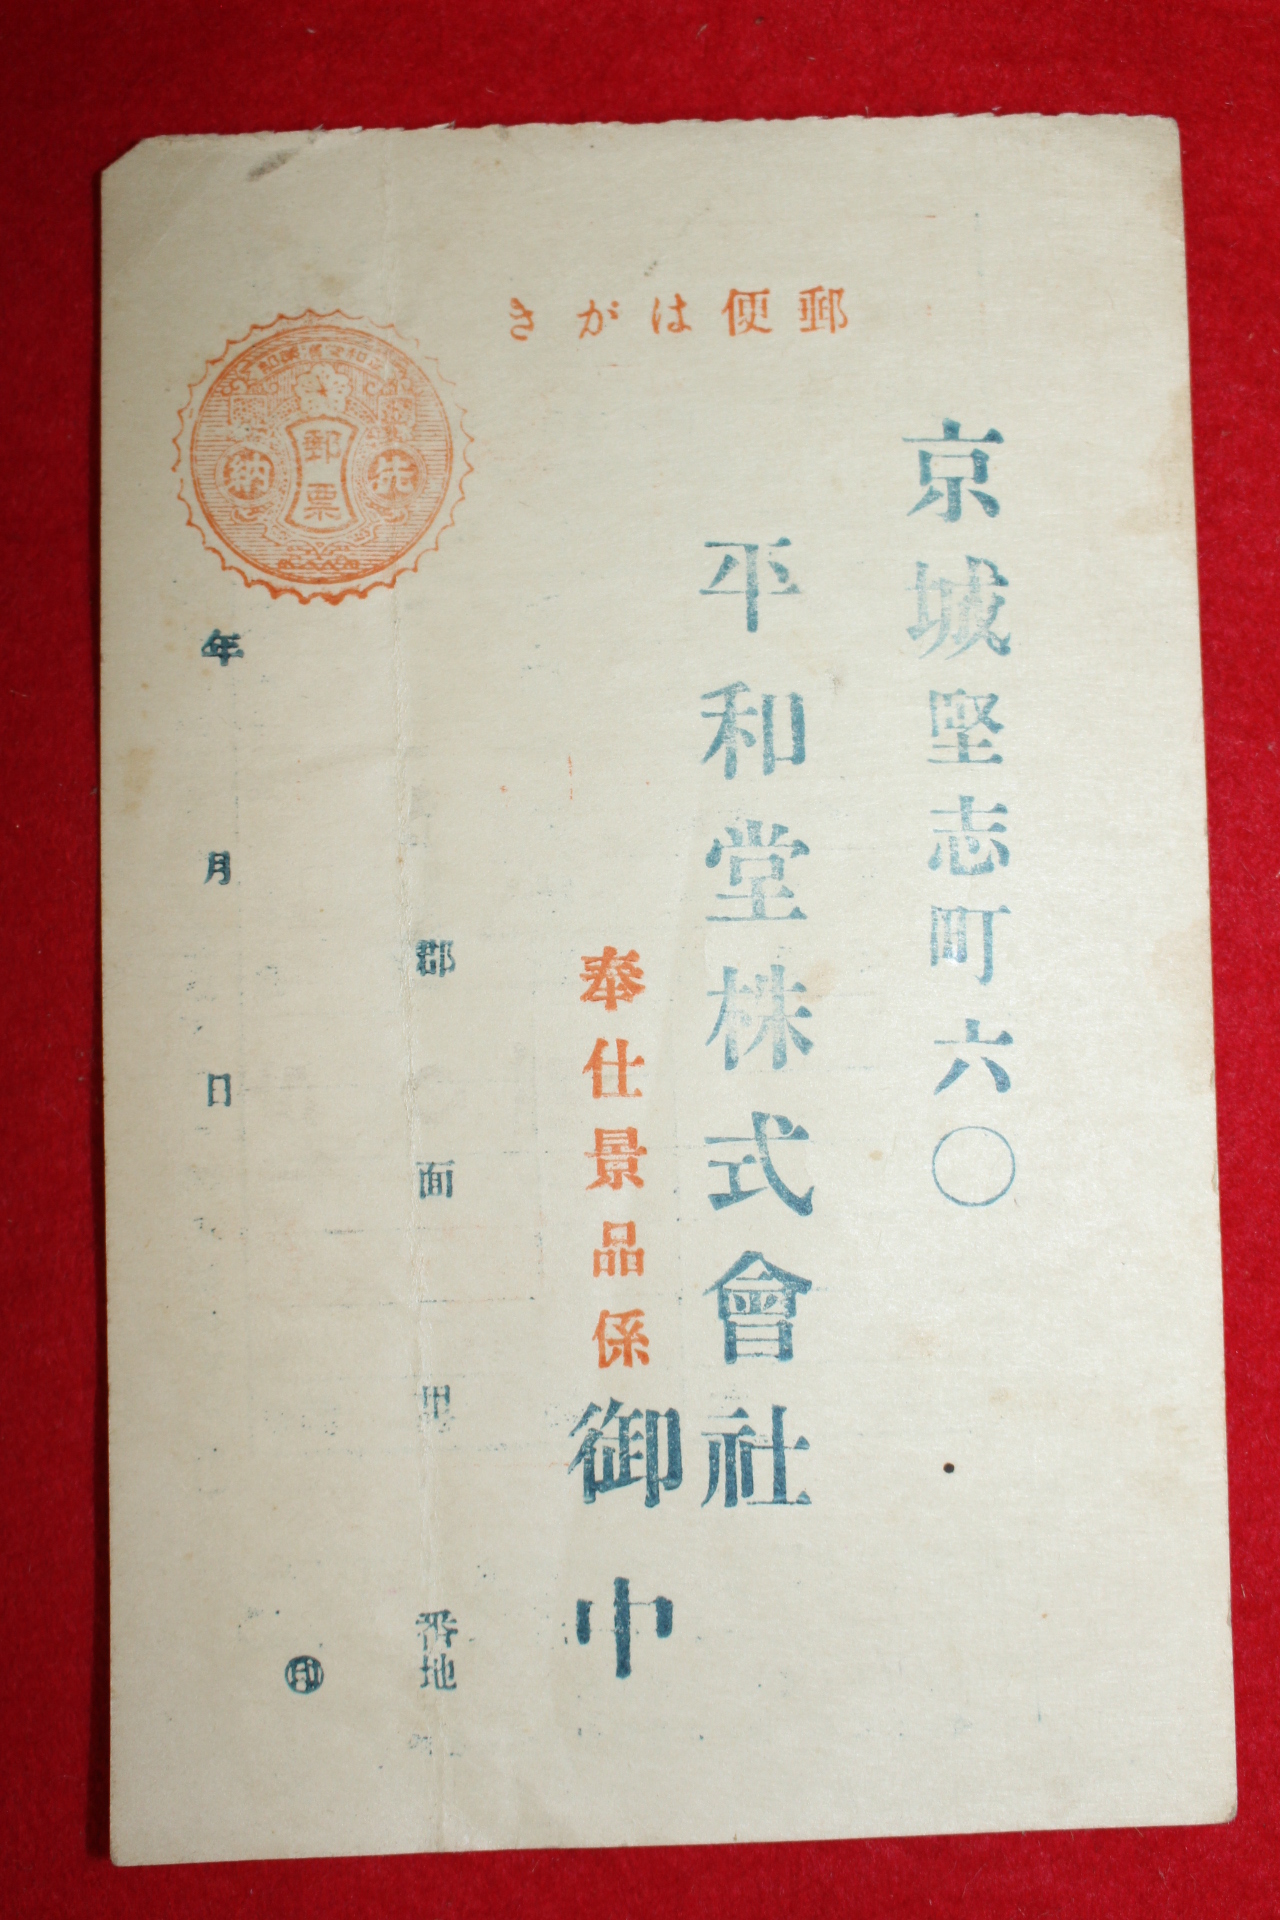 郵便はがき
京城堅志町六〇
平和堂株式會社
奉仕景品係御中
郡 面 里 番地
印
年 月 日
郵票
先納